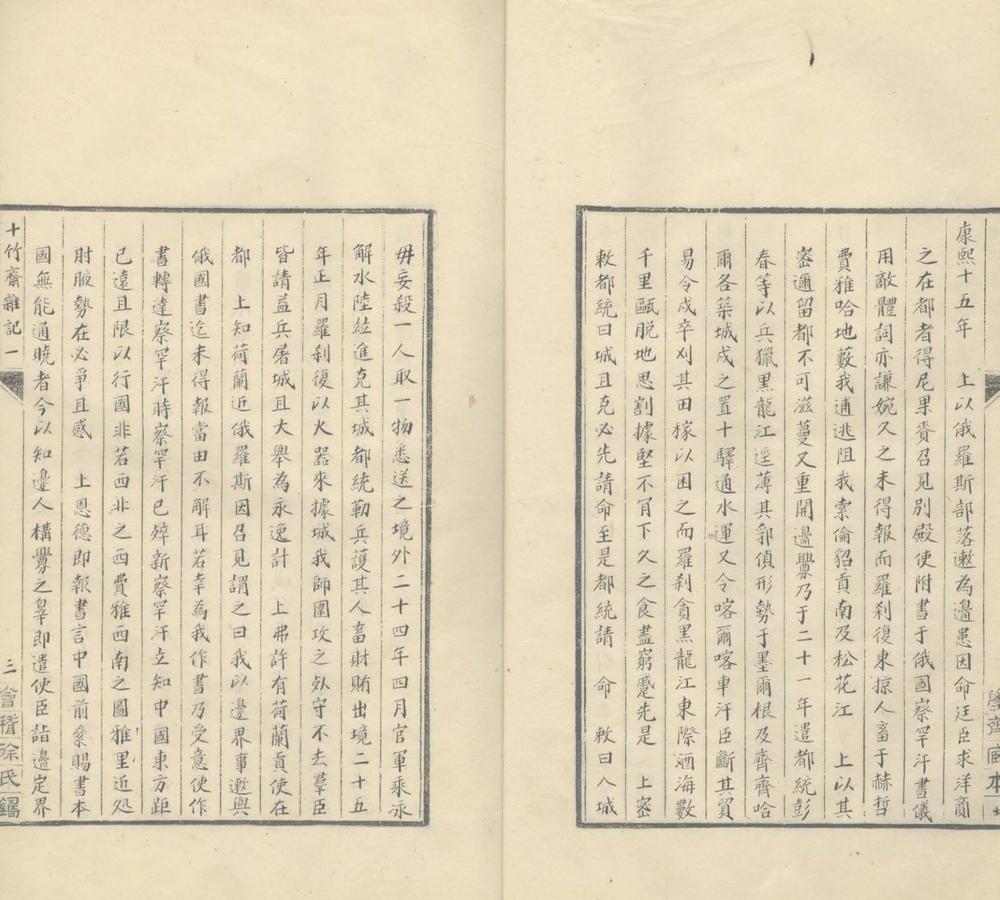 康熙十五年　上以俄羅斯部落遫為邊患因命廷臣求洋商
之在都者得尼果賚召見別殿使附書于俄國察罕汗書儀
用敵體詞亦謙婉久之未得報而羅刹復東掠人畜于赫哲
費雅哈地藪我逋逃阻我索倫貂貢南及松花江　上以其
密邇留都不可滋蔓又重開邊釁乃于二十一年遣都統彭
春等以兵獵黑龍江逕薄其郛偵形勢于墨爾根及齊齊哈
爾各築城戍之置十驛通水運又令喀爾喀車汗臣斷其貿
易令戍卒刈其田稼以困之而羅刹貪黑龍江東際洒海數
千里甌脫地思割據堅不肯下久之食盡窮蹙先是　上密
敕都統曰城且克必先請命至是都統請　命　敕曰入城
毋妄殺一人取一物悉送之境外二十四年四月官軍乘冰
解水陸竝進克其城都統勒兵護其人畜財賄出境二十五
年正月羅刹復以火器來據城我師圍攻之死守不去羣臣
皆請益兵屠城且大舉為永逸計　上弗許有荷蘭貢使在
都　上知荷蘭近俄羅斯因召見謂之曰我以邊界事遫與
俄國書迄未得報當由不解耳若幸為我作書乃受意使作
書轉達察罕汗時察罕汗已婞新察罕汗立知中國東方距
已遠且限以行國非若西北之西費雅西南之圖雅里近处
肘腋勢在必爭且感　上恩德即報書言中國前絫賜書本
國無能通曉者今以知邊人構釁之辠即遣使臣詣邊定界
十竹齋雜記一
三
會稽徐氏鑄